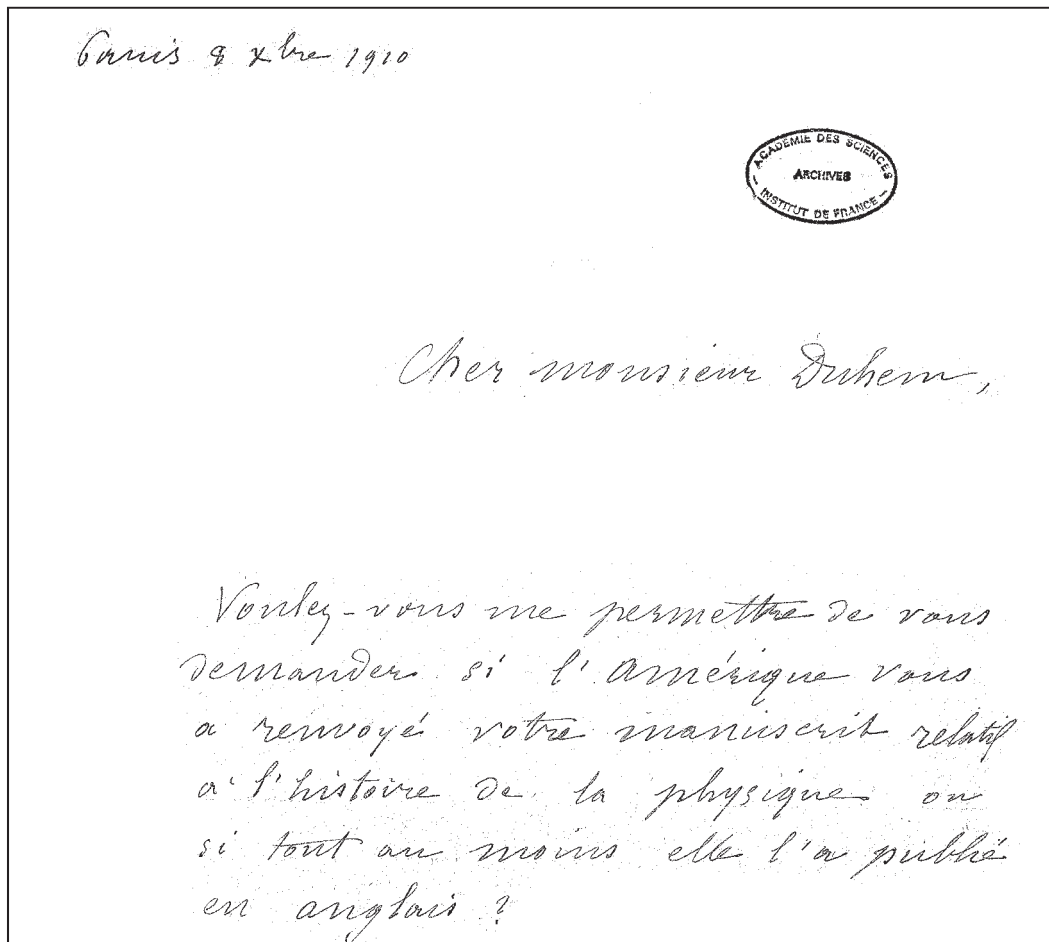 Paris 8 xbre 1910
ACADÉMIE DES SCIENCES
ARCHIVES
– INSTITUT DE FRANCE –
Cher monsieur Duhem,
Voulez-vous me permettre de vous
demander si l'Amérique vous
a renvoyé votre manuscrit relatif
à l'histoire de la physique ou
si tout au moins elle l'a publié
en anglais ?